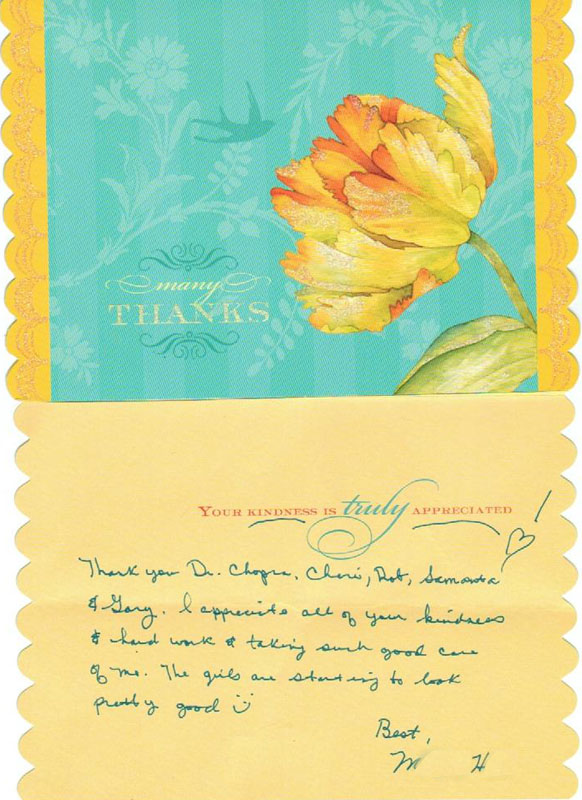 many
THANKS
YOUR KINDNESS IS truly APPRECIATED !
Thank you Dr. Chopra, Cheri, Rob, Samanta
& Gary. I appreciate all of your kindness
& hard work & taking such good care
of me. The girls are starting to look
pretty good
Best,
M H